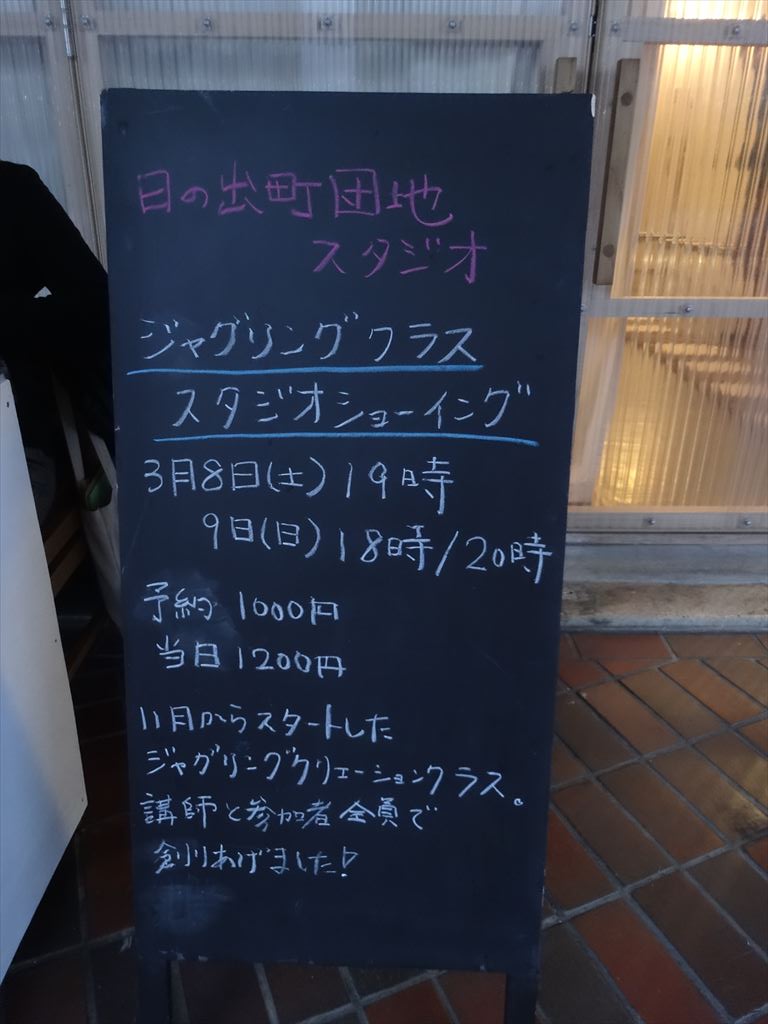 日の出町団地
スタジオ
ジャグリングクラス
スタジオショーイング
3月8日(土)19時
9日(日)18時/20時
予約 1000円
当日1200円
11月からスタートした
ジャグリングクリエーションクラス。
講師と参加者全員で
創りあげました!